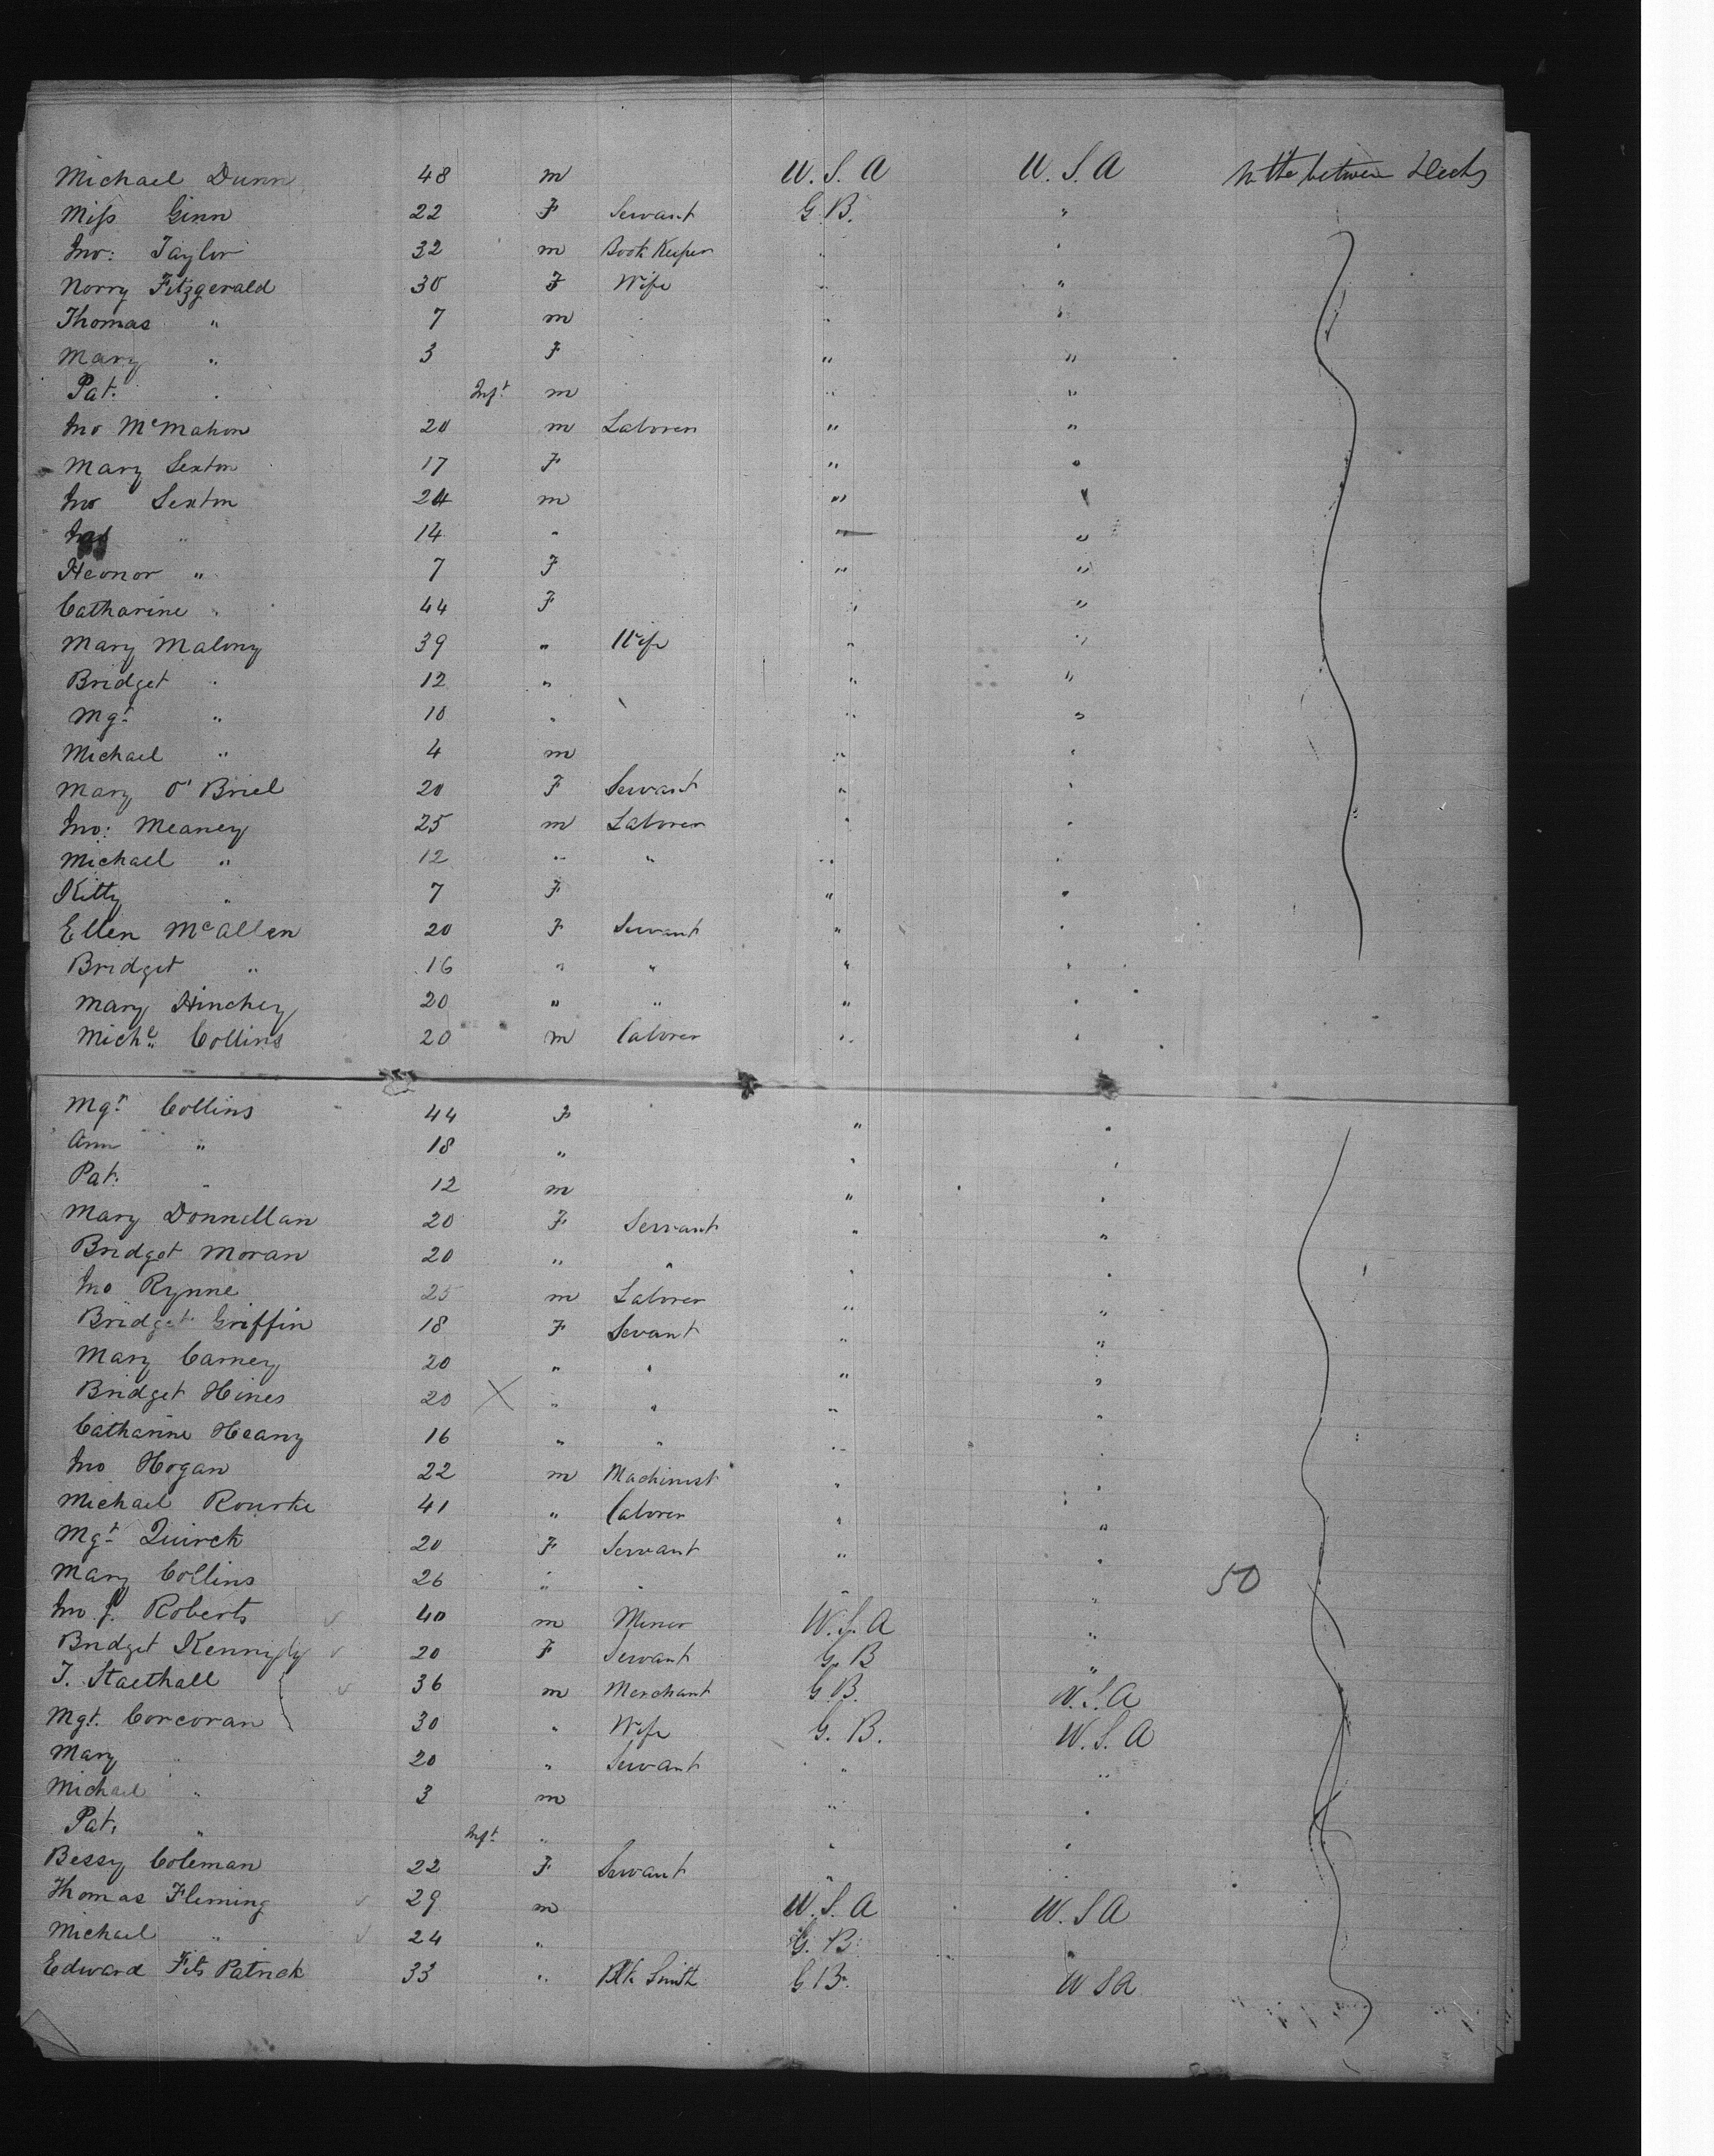 Michael Dunn 48 m U. S. A U. S. A In the between Decks
Miss Ginn 22 F Servant G B. "
Jno: Taylor 32 m Book Keeper " "
Norry Fitzgerald 30 F Wife " "
Thomas " 7 m " "
Mary " 3 F " "
Pat. " Inft m " "
Jno McMahon 20 m Laborer " "
Mary Sexton 17 F " "
Jno Sexton 24 m " "
" 14 " " "
Heonor " 7 F " "
Catharine " 44 F " "
Mary Malony 39 " Wife " "
Bridget " 12 " " "
Mgt " 10 " " "
Michael " 4 m " "
Mary O'Briel 20 F Servant " "
Jno: Meaney 25 m Laborer " "
Michael " 12 " " " "
Kitty " 7 F " "
Ellen McAllen 20 F Servant " "
Bridget " 16 " " " "
Mary Hinchey 20 " " " "
Miche Collins 20 m Laborer " "
Mgt Collins 44 F " "
Ann " 18 " " "
Pat. " 12 m " "
Mary Donnellan 20 F Servant " "
Bridget Moran 20 " " " "
Jno Rynne 25 m Laborer " "
Bridget Griffin 18 F Sevant " "
Mary Carney 20 " " " "
Bridget Hines 20 X " " " "
Catharine Heany 16 " " " "
Jno Hogan 22 m Machinist " "
Michael Rourke 41 " Laborer " "
Mgt Quirck 20 F Servant " "
Mary Collins 26 " " " " 50
Jno J. Roberts 40 m Miner U. S. A "
Bridget 20 F Servant G. B "
J. Staethall 36 m Merchant G. B. U. S. A
Mgt. Corcoran 30 " Wife G. B. U. S. A
Mary " 20 " Servant " "
Michael " 3 m " "
Pat. " Inft " " "
Bessy Coleman 22 F Servant " "
Thomas Fleming 29 m U. S. A U. S A
Michael " 24 " G. B. "
Edward Fits Patrick 33 " Blk Smith G B. U S A